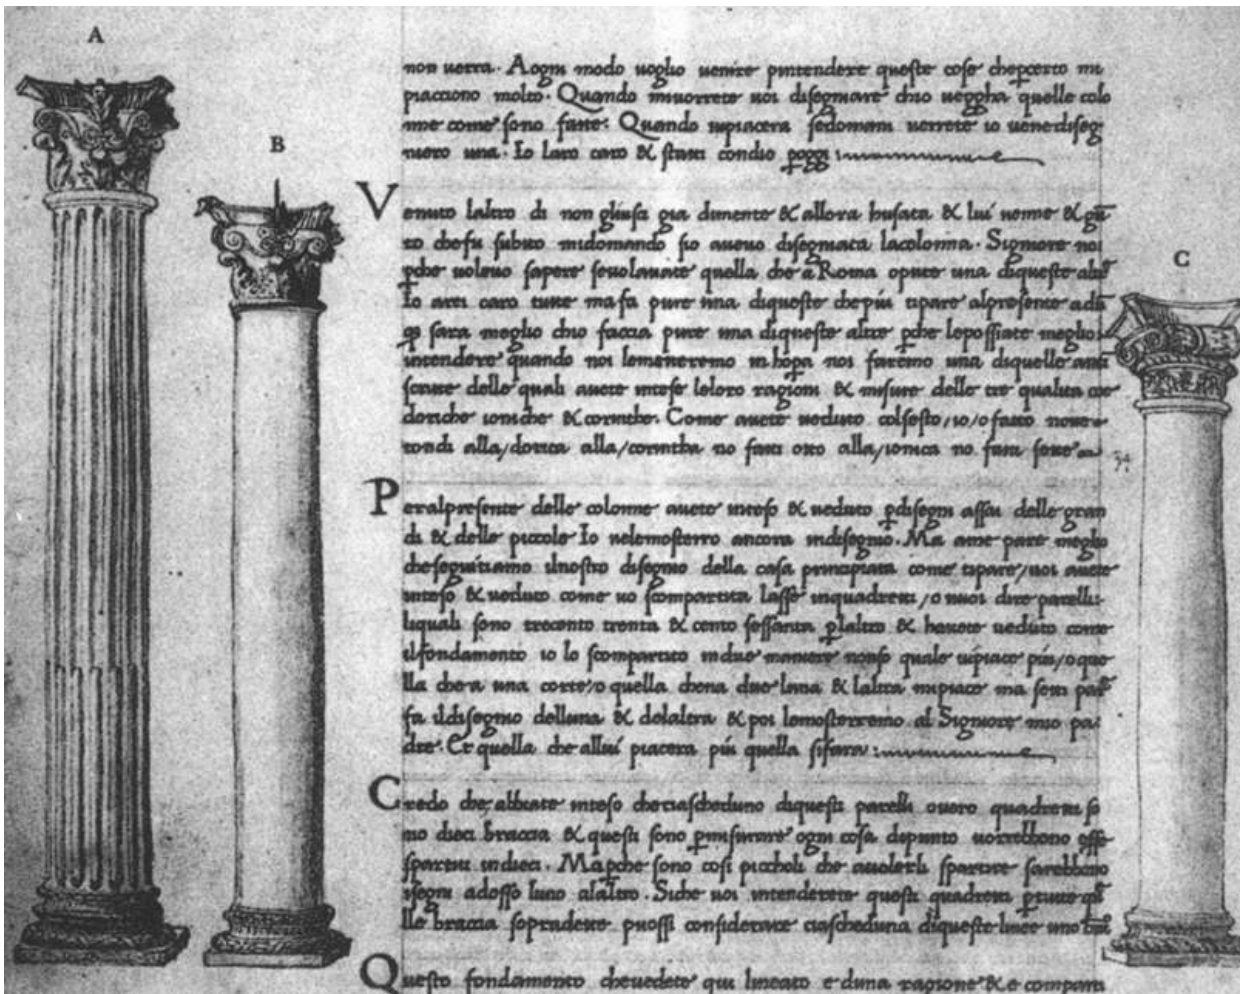 A
B
C
non uerra. A ogni modo uoglio uenire pintendere queste cose chepcerto mi
piacciono molto. Quando miuorrete uoi disegniare chio ueggha quelle colo
nne come sono fatte. Quando uipiacera sedomani uerrete io uenedisegⁿ
nero una. Io laro caro & stati condio poggi
Venuto laltro di non gliusci gia dimente & allora husata & lui uenne &
to chefu subito midomando sio aueuo disegniata lacolonna. Signore noi
pche uoleuo sapere seuolauate quella che a Roma opure una diqueste
Io arei caro tutte ma fa pure una diqueste chepiu tipare alpresente
sara meglio chio faccia pure una diqueste altre pche lepossiate meglio
intendere quando noi lemetteremo inhopa noi faremo una diquelle
delle quali auete inteso leloro ragioni & misure delle tre qualita
doriche ioniche & corinthe. Come auete ueduto colsesto, io/o fatto noue
tondi alla/dorica alla/corintha no fatti otto alla/ionica no fatti sette
Peralpresente delle colonne auete inteso & ueduto pdisegni assai delle gran
di & delle piccole Io uelemosterro ancora indisegnio. Ma ame pare meglio
cheseguitiamo ilnostro disegno della casa principiata come tipare/uoi auete
inteso & ueduto come uo scompartita lasse inquadretti/o uuoi dire parelli
liquali sono trecento trenta & cento sessanta plaltro & hauete ueduto come
ilfondamento io lo scompartito indue maniere nonso quale uipiace piu/o que
lla chera una corte/o quella chena due luna & laltra mipiace ma
fa ildisegno delluna & delaltra & poi lemosterremo al Signore mio pa
dre. Et quella che allui piacera piu quella sifara
Credo che abbiate inteso checiascheduno diquesti parelli ouero quadretti so
no dieci braccia & questi sono pmisurare ogni cosa dipunto uorrebbono esse
spartiti indieci. Mapche sono cosi piccholi che auolerli spartire sarebbono
isegni adosso luno alaltro. Siche uoi intenderete questi quadretti
lle braccia sopradette puossi considerare ciascheduna diqueste linee uno
Questo fondamento cheuedete qui lineato e duna ragione & e comparti